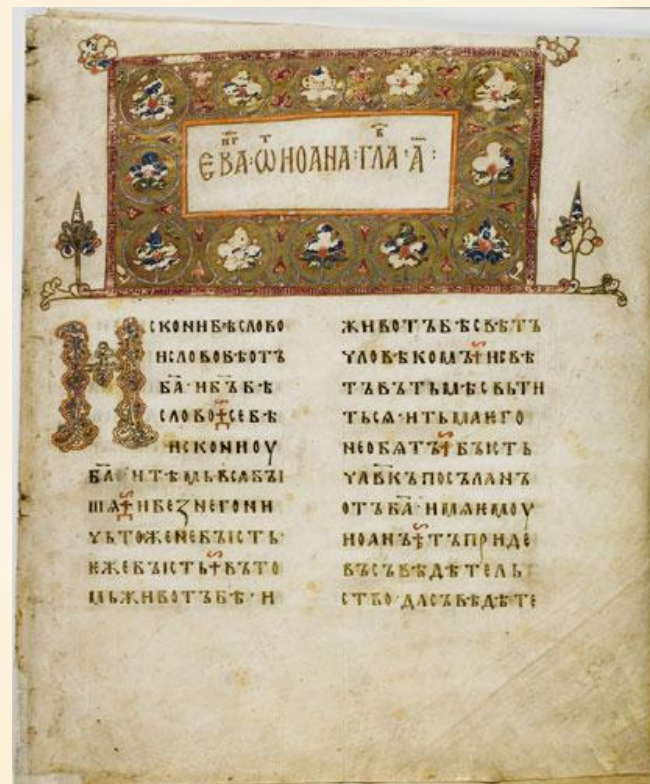 ЕВАНГ·Ѿ ИОАНА·ГЛАВ·А҃:
ИСКОНИБѢСЛОВО
ИСЛОВОБѢОТЪ
БА҃·ИБ҃ЪБѢ
СЛОВО СЕБѢ
ИСКОНИОУ
БА҃·ИТѢМЬВСѦБЪІ
ШѦ ИБЕЗНЕГОНИ
ЧЬТОЖЕНЕБЪІСТЬ·
ЕЖЕБЪІСТЬ ВЪТО
МЬЖИВОТЪБѢ·И
ЖИВОТЪБѢСВѢТЪ
ЧЛОВѢКОМЪ ИСВѢ
ТЪВЪТЬМѢСВЬТИ
ТЬСѦ·ИТЬМАѤГО
НЕОБѦТЪ БЪІСТЬ
ЧЛВ҃КЪПОСЪЛАНЪ
ОТЪБА҃·ИМѦѤМОУ
ИОАНЪ ТЪПРИДЕ
ВЪСЪВѢДѢТЕЛЬ
СТВО·ДАСЪВѢДѢТЕ